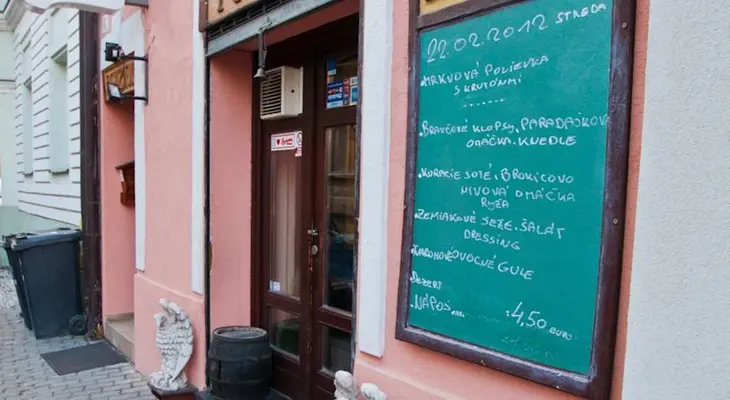 22.02.2012 STREDA
MRKVOVÁ POLIEVKA
S KRUTÓNMI
.......
BRAVČOVÉ KLOPSY, PARADAJKOVÁ
OMÁČKA. KNEDLE
KURACIE SOTÉ, BROKICOVO
NIVOVÁ OMÁČKA
RYŽA
ZEMIAKOVÉ SEZE. ŠALÁT
DRESSING
TVAROHOVÉOVOCNÉ GULE
DEZERT
NÁPOJ 4,50 EURO